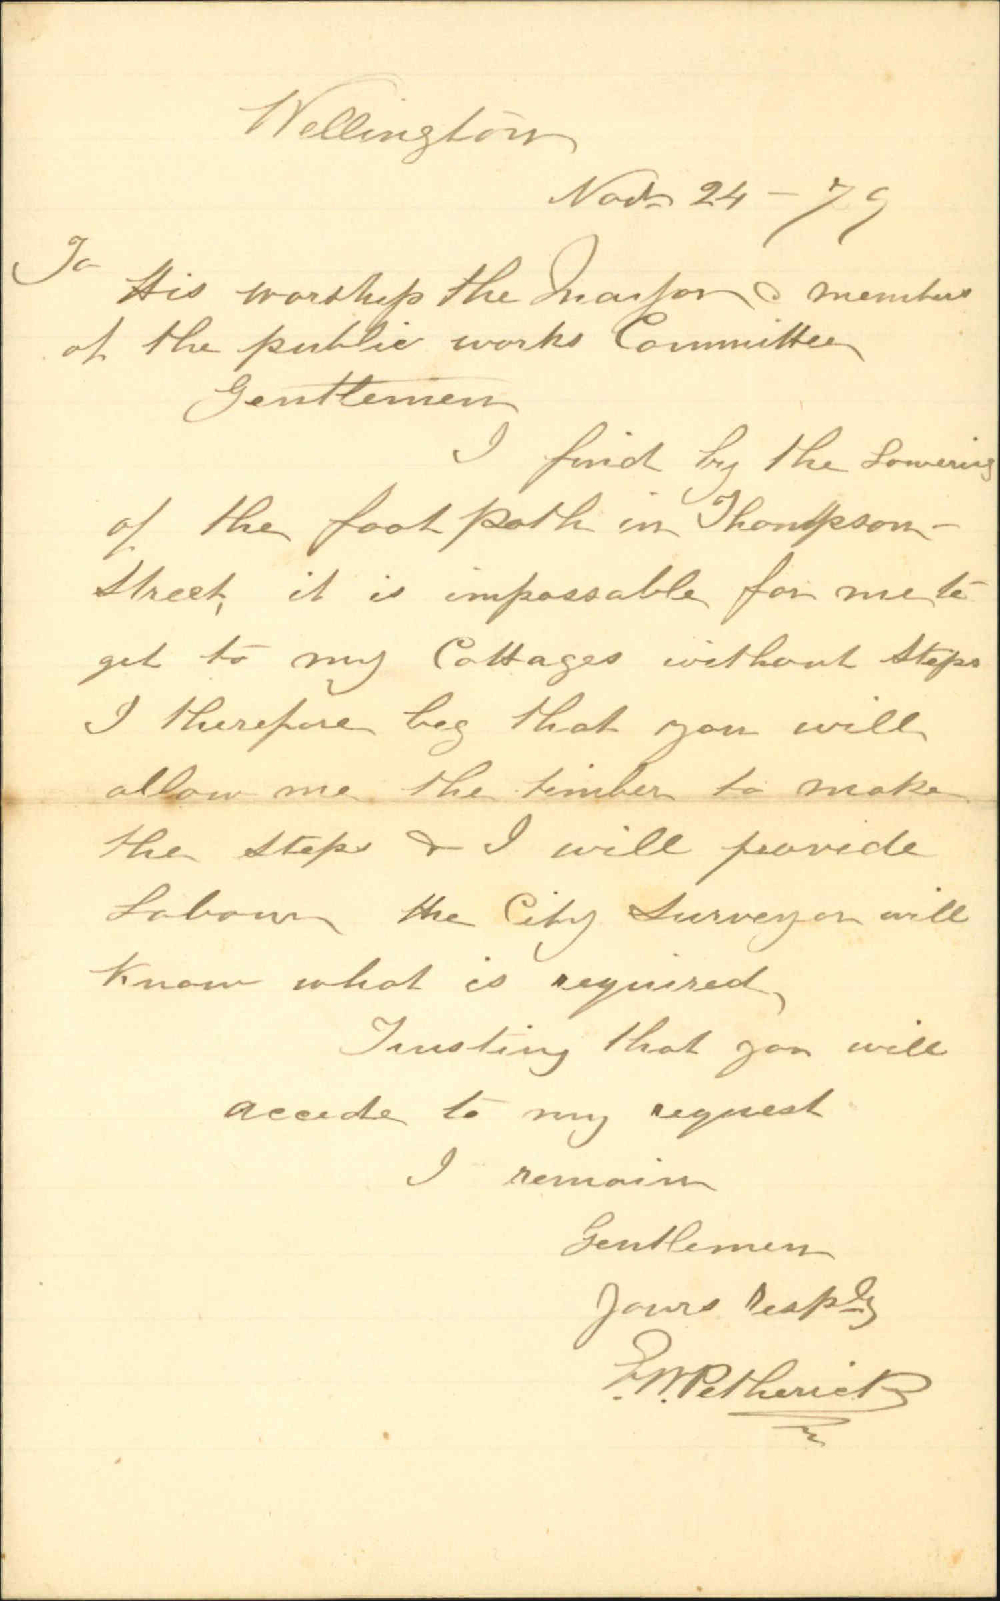 Wellington
Novr 24 - 79
To
His worship the Mayor & members
of the public works Committee
Gentlemen
I find by the Lowering
of the foot path in Thompson-
Street, it is impossable for me to
get to my Cottages without steps
I therefore beg that you will
allow me the timber to make
the steps & I will provide
Labour the City Surveyor will
Know what is required,
Trusting that you will
accede to my request
I remain
Gentlemen
Yours resply
W. Petherick